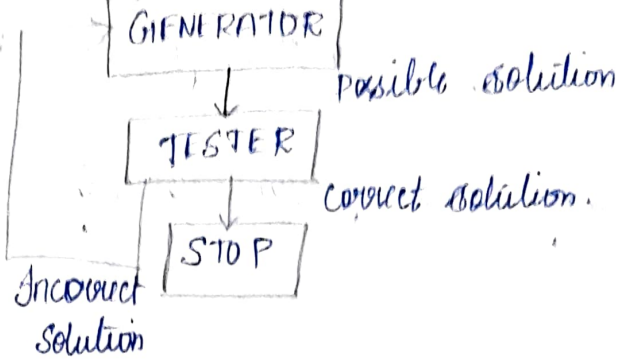 GENERATOR
Possible solution
TESTER
Correct solution.
STOP
Incorrect
Solution